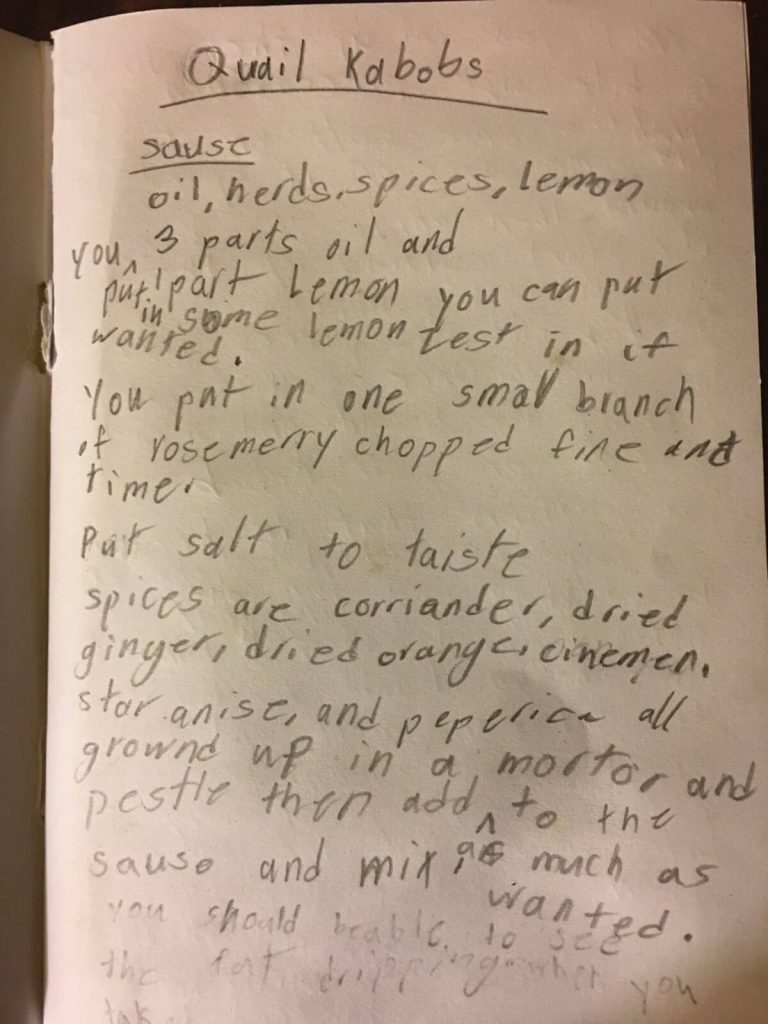 Quail Kabobs
sause
oil, herds, spices, lemon
you ^ 3 parts oil and
put 1 part Lemon you can put
in some lemon test in if
wanted.
You put in one small branch
of rosemerry chopped fine and
time.
Put salt to taiste
spices are corriander, dried
ginger, dried orange, cinemen,
star anise, and peperica all
grownd up in a mortor and
pestle then add ^ to the
sause and mix, as much as
wanted.
you should beable to see
the fat dripping when you
tak